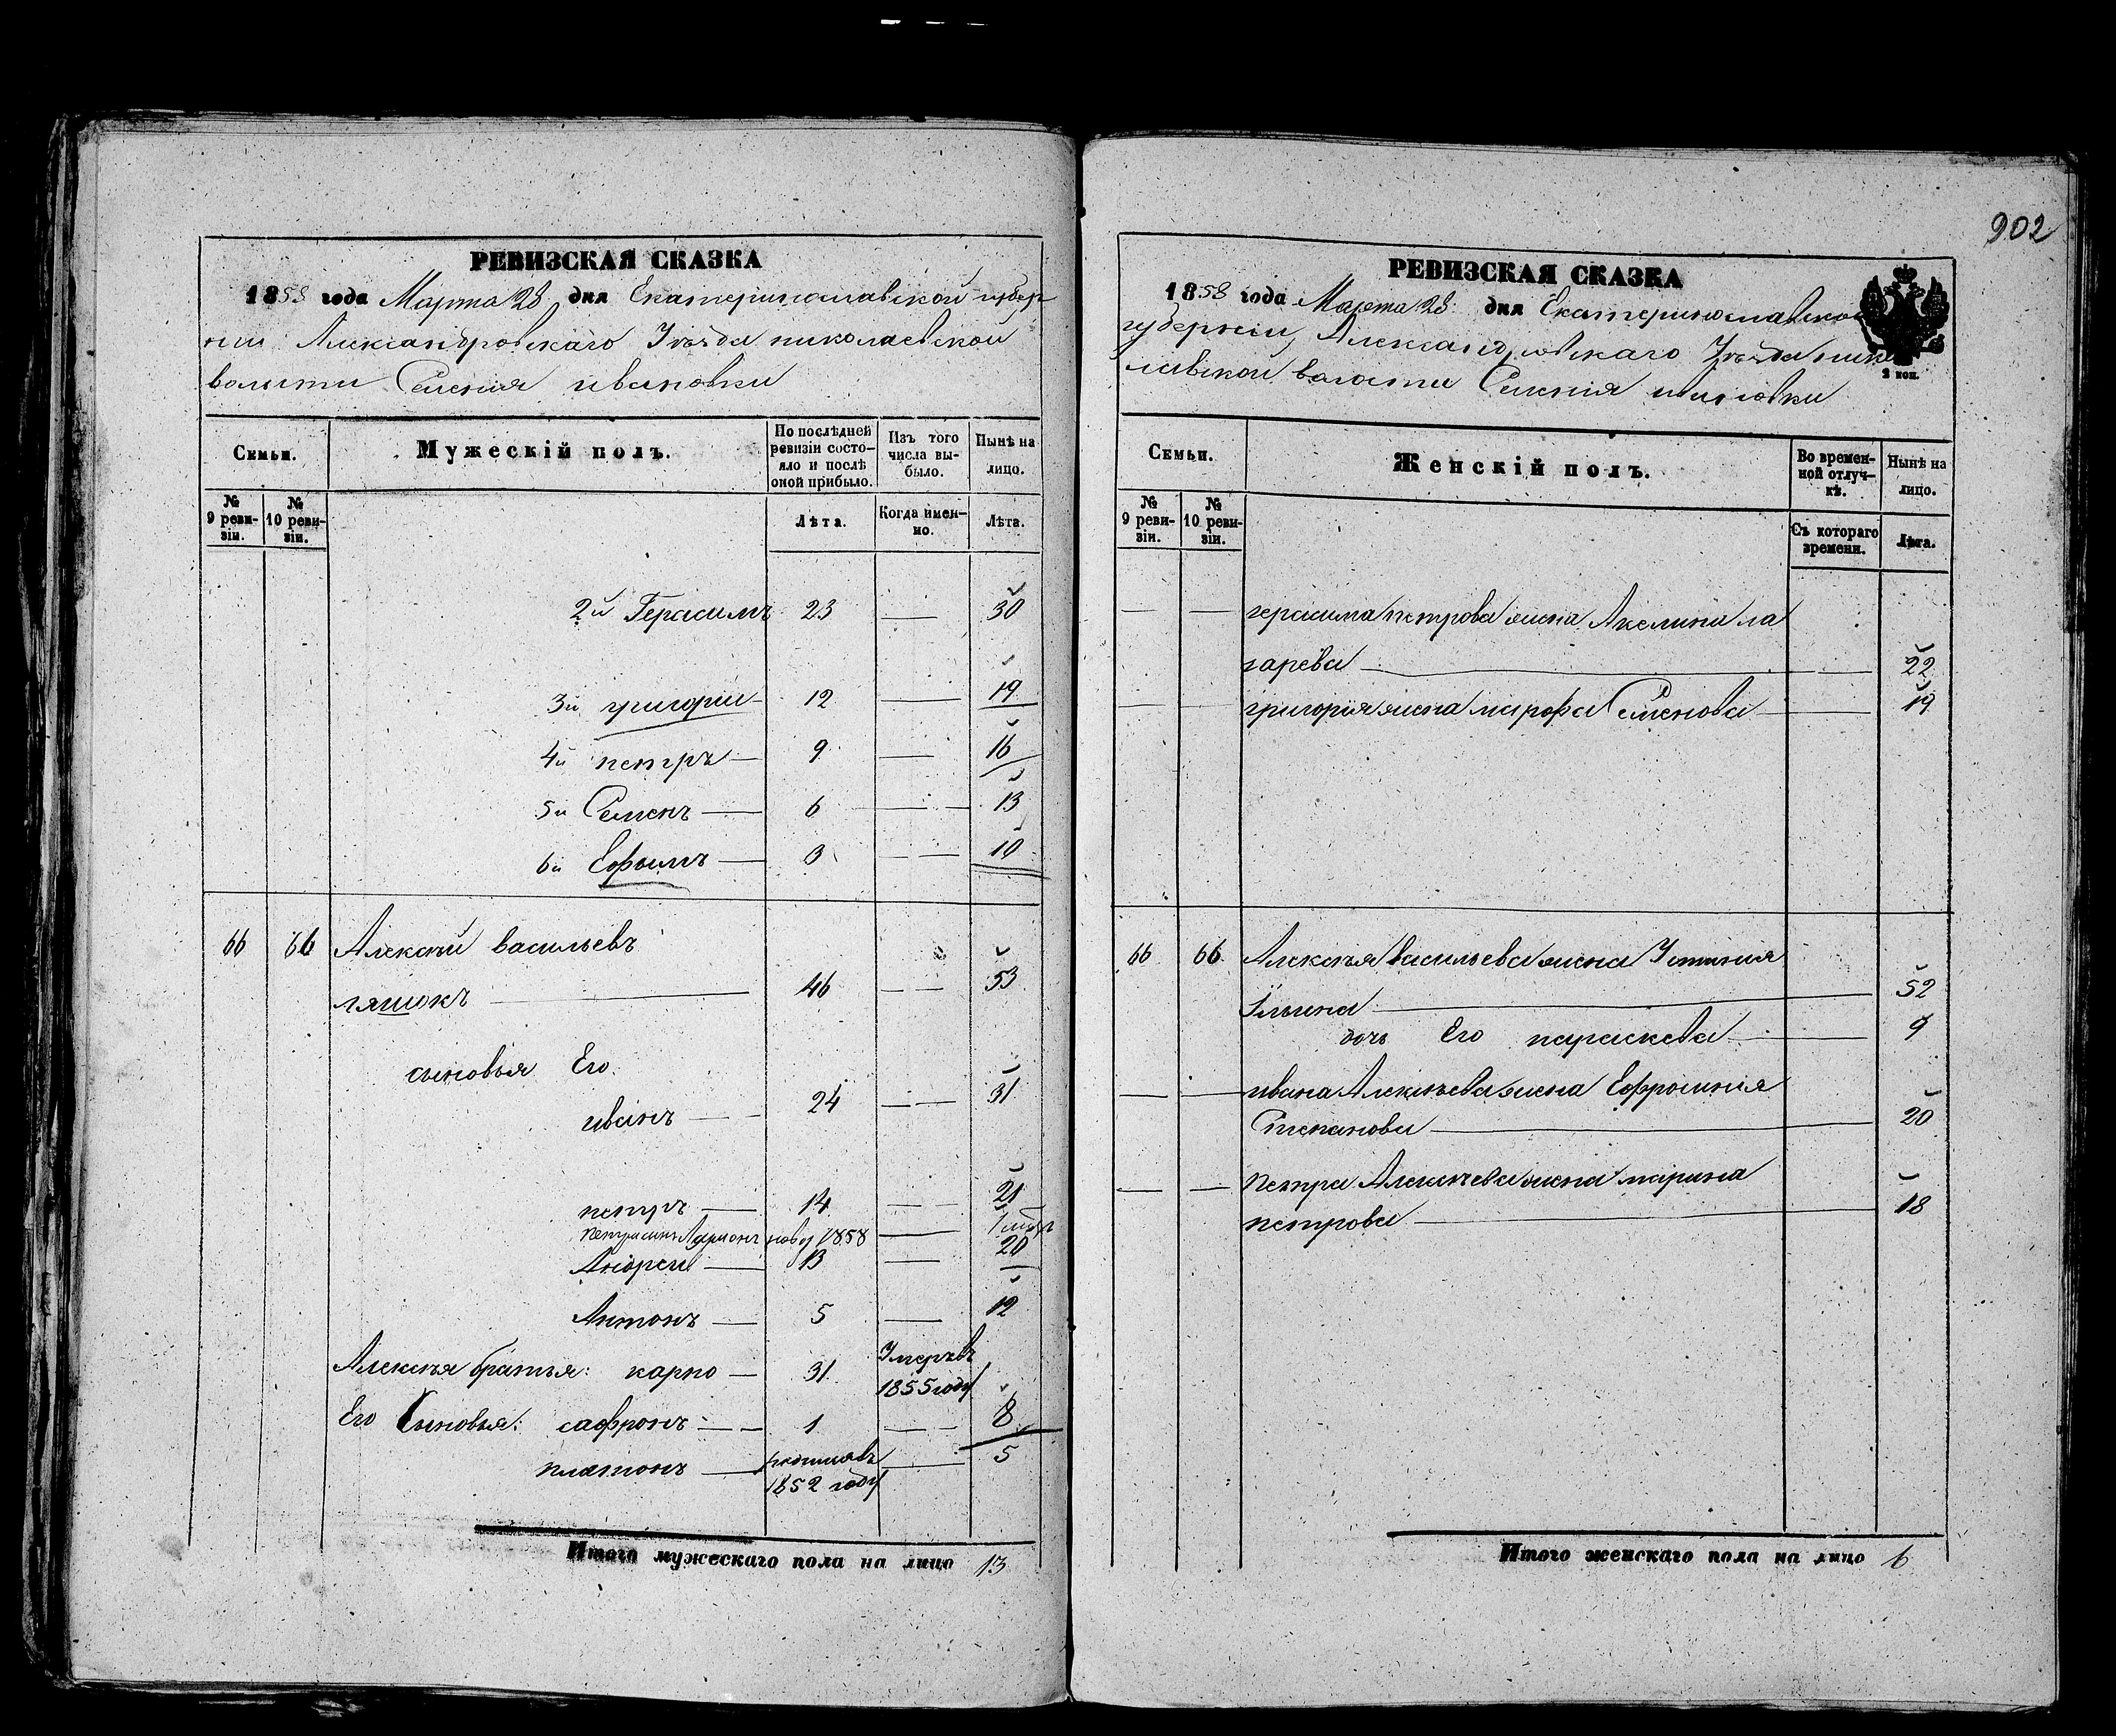 902
РЕВИЗСКАЯ СКАЗКА
1858 года Марта 28 дня Екатеринославской губер
нии Александровскаго Уѣзда николаевской
волости Селенія ивановки
Семьи.
Мужескій полъ.
По послѣдней ревизіи состо-
яло и послѣ оной прибыло.
Изъ того числа вы-
было.
Нынѣ на лицо.
№ 9 реви-
зіи.
№ 10 реви-
зіи.
Лѣта.
Когда имен-
но.
Лѣта.
2й Герасимъ 23 — 30
3й григории 12 — 19
4й петръ 9 — 16
5й Семенъ 6 — 13
6й Ефимъ 3 — 10
66 66 Алексѣй васильевъ
ляшокъ 46 — 53
сыновья Его
иванъ 24 — 31
петръ 14 — 21
Петра сынъ новор 1858 —
Андреи 13 — 20
Антонъ 5 — 12
Алексѣя братья: карпо 31 Умеръвъ
1855 году
Его Сыновья: сафронъ 1 — 8
платонъ родишвъ — 5
1852 году
Итого мужескаго пола на лицо 13
РЕВИЗСКАЯ СКАЗКА
1858 года Марта 28 дня Екатеринославской
губерніи Александровскаго Уѣзда нико
лавской волости Селенія ивановки
2 коп.
Семьи.
Женскій полъ.
Во времен-
ной отлуч-
кѣ.
Нынѣ на лицо.
№ 9 реви-
зіи.
№ 10 реви-
зіи.
Съ котораго времени.
Лѣта.
— — герасима петрова жена Акелина ла
зарева — 22
— — григория жена марфа Семенова — 19
66 66 Алексѣя васильева жена Устиния
Ильина — 52
дочь Его параскева — 9
— — ивана Алексѣева жена Ефросиния
Степанова — 20
— — Петра Алексѣева жена марина
петрова — 18
Итого женскаго пола на лицо 6